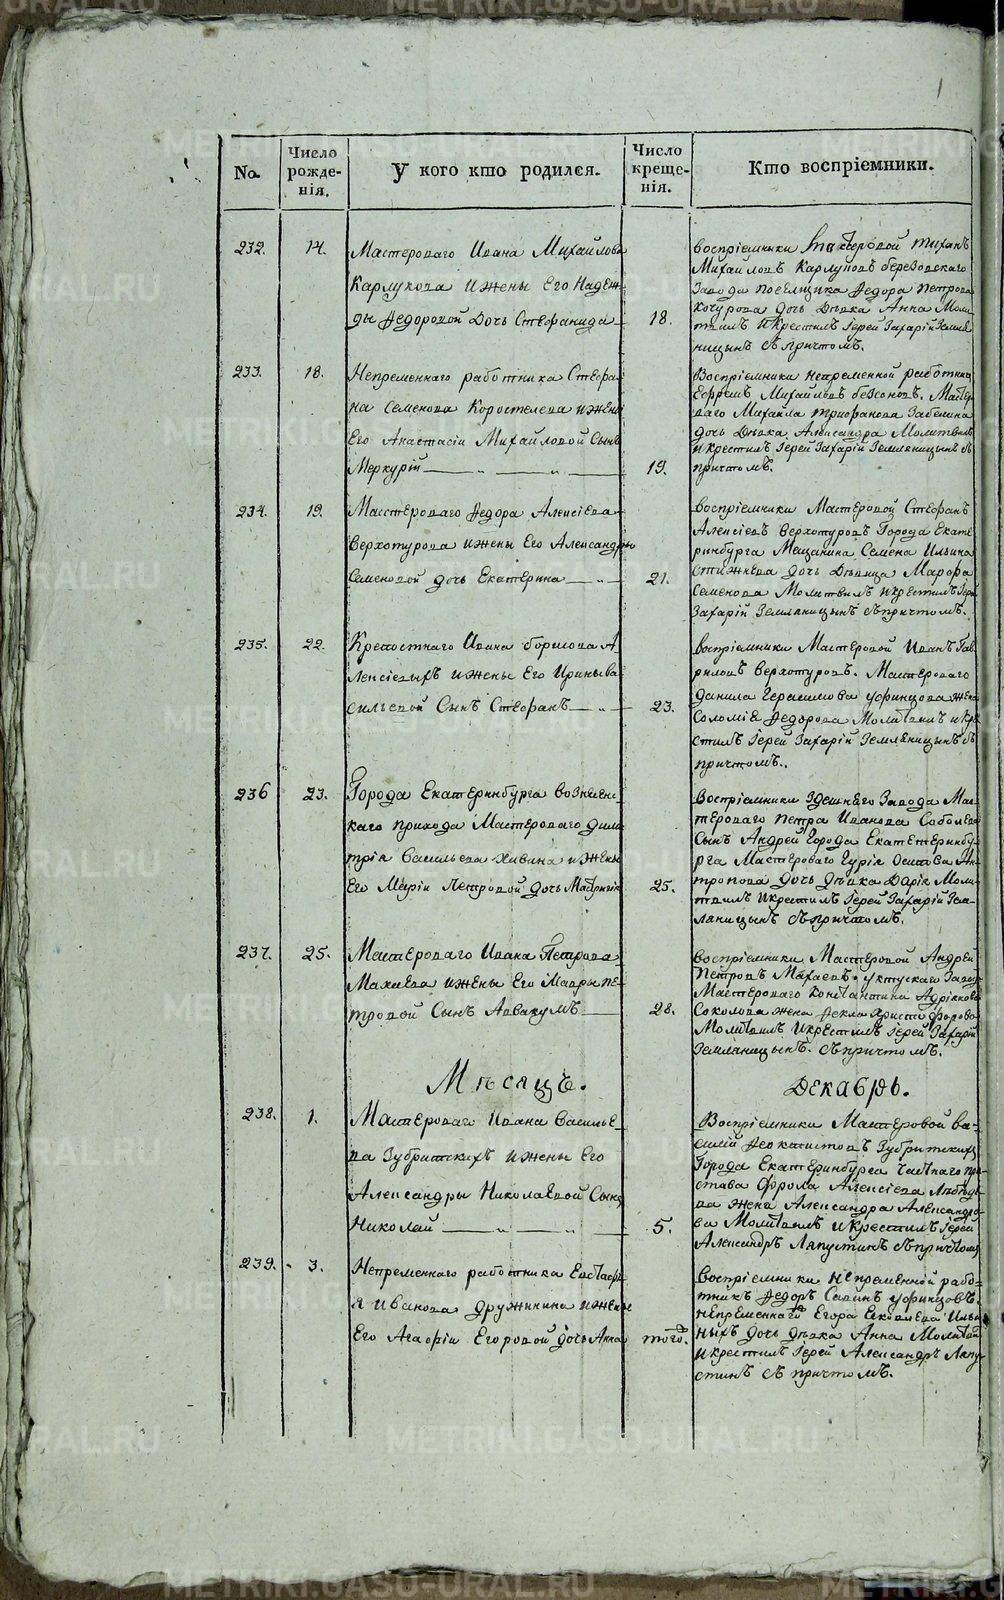 No.
Число рожде-нія.
У кого кто родился.
Число креще-нія.
Кто воспріемники.
232.
14.
Мастероваго Ивана Михайлова
Карлукова и жены Его Надеж-
ды Федоровой Дочь Стефанида
18.
воспріемники Мастеровой
Михайловъ Карлуковъ березовскаго
Завода поселщика Федора Петрова
Кочурова дочь Дѣвка Анна Моли-
твилъ и крестилъ Іерей Захарій Земля-
ницынъ съ причтомъ.
233.
18.
Непременнаго работника Стефа-
на Семенова Коростелева и жены
Его Анастасіи Михайловой Сынъ
Меркурій
19.
Воспріемники непременной работник
Ефремъ Михайловъ безсоновъ. Мастер-
ваго Михаила Трифанова Забелина
дочь Дѣвка Александра Молитвилъ
и крестилъ Іерей Захарій Земляницынъ съ
причтомъ.
234.
19.
Мастероваго Федора Алексіева
Верхотурова и жены Его Александры
Семеновой дочь Екатерина
21.
воспріемники Мастеровой Стефанъ
Алексіевъ Верхотуровъ Города Екате
ринбурга Мещанина Семена Ильина
Стижнева дочь Дѣвица Марфа
Семенова Молитвилъ и крестилъ Іерей
Захарій Земляницынъ съ причтомъ.
235.
22.
Крепостнаго Ивана борисова А
лексіевыхъ и жены Его Ирины Ва
сильевой Сынъ Стефанъ
23.
воспріемники Мастеровой Иванъ Гав
риловъ Верхотуровъ. Мастероваго
Данила Герасимова уфинцова жена
Соломіе Федорова Молитвилъ и кре
стилъ Іерей Захарій Земляницынъ съ
причтомъ.
236
23.
Города Екатеринбурга вознесен-
скаго прихода Мастероваго Дими
трія Васильева Хивина и жены
Его Маріи Петровой дочь
25.
Воспріемники здешнего Завода Мас-
тероваго Петра Иванова Соболева
Сынъ Андрей Города Екатетеринбу-
рга Мастероваго Гурія Осипова Ан-
тропова дочь дѣвка Дарія Моли-
твилъ и крестилъ Іерей Захарій Зем-
ляницынъ съ причтомъ.
237.
25.
Мастероваго Ивана Петрова
Махаева и жены Его Мавры Пе-
тровой Сынъ Аввакумъ
28.
воспріемники Мастеровой Андрей
Петровъ Махаевъ. уктускаго Завода
Мастероваго Константина Адріянова
Соколова жена Фекла Христофорова
Молитвилъ и крестилъ Іерей Захарій
Земляницынъ. съ причтомъ.
Мѣсяцъ.
Декабрь.
238.
1.
Мастероваго Ивана Василье-
ва Зубритскихъ и жены Его
Александры Николаевой Сынъ
Николай
5.
Воспріемники Мастеровой ва-
силій Феоктистовъ Зубритскихъ
Города Екатеринбурга частнаго при-
става Фрола Алексіева
ва жена Александра Александро-
ва Молитвилъ и крестилъ Іерей
Александръ Ляпустинъ съ причтомъ
239.
3.
Непременнаго работника Евстафі-
я Иванова дружинина и жены
Его Агафіи Егоровой дочь Анна
того.
воспріемники непременной рабо-
тникъ Федоръ Савинъ уфинцовъ.
непременнаго Егора Яковлева Ильи
ныхъ дочь дѣвка Анна Молитвилъ
и крестилъ Іерей Александръ Ляпу-
стинъ съ причтомъ.
METRIKI.GASO-URAL.RU